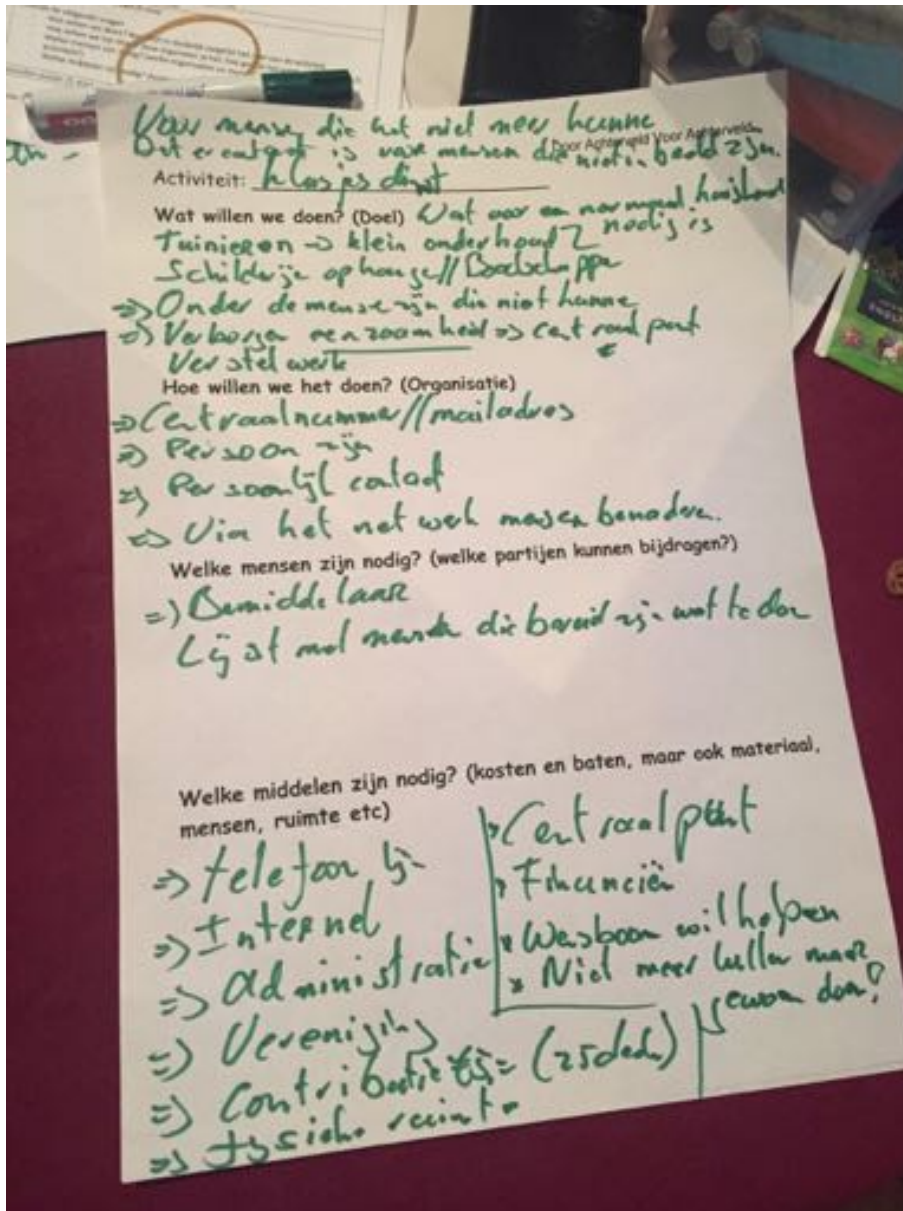 Voor mensen die het niet meer kunne
Door Achterveld Voor Achterveld
Dat er contact is voor mensen die niet in beeld zijn.
Activiteit: Klusjes dienst
Wat willen we doen? (Doel) Wat voor een normaal huishoud nodig is
Tuinieren → klein onderhoud
Schilderije ophange // Boodschappe
⇒ Onder de mense zijn die niet kunne
⇒ Verborgen eenzaamheid ⇒ centraal punt
Verstelwerk
Hoe willen we het doen? (Organisatie)
⇒ Centraal nummer // mailadres
⇒ Persoon zijn
⇒ Persoonlijk contact
⇒ Via het netwerk mensen benaderen.
Welke mensen zijn nodig? (welke partijen kunnen bijdragen?)
⇒ Bemiddelaar
Lijst met mensen die bereid zijn wat te doen
Welke middelen zijn nodig? (kosten en baten, maar ook materiaal,
mensen, ruimte etc)
⇒ telefoon lijn
⇒ Internet
⇒ administratie
⇒ Vereniging
⇒ Contributie (25
⇒ fysieke ruimte
Centraal punt
Financiën
wil helpen
Niet meer lullen maar
gewoon doen!